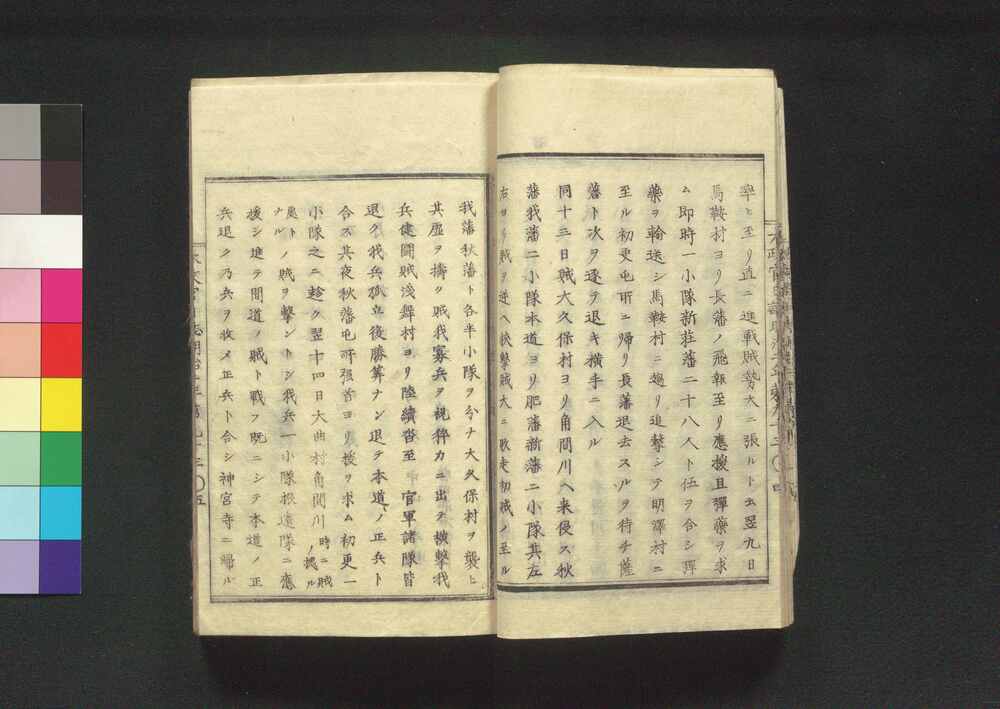 率ヒ至リ直ニ進戰賊勢大ニ張ルト云翌九日
馬鞍村ヨリ長藩ノ飛報至リ應援且彈藥ヲ求
ム即時一小隊新莊藩二十八人ト伍ヲ合シ彈
藥ヲ輸送シ馬鞍村ニ趨リ追撃シテ明澤村ニ
至ル初更屯所ニ歸リ長藩退去スルヲ待チ薩
藩ト次ヲ逐ヲ退キ横手ニ入ル
同十三日賊大久保村ヨリ角間川ヘ来侵ス秋
藩我藩二小隊本道ヨリ肥藩新藩二小隊其左
右ヨリ賊ヲ逆ヘ挾撃賊大ニ敗走初賊ノ至ル
我藩秋藩ト各半小隊ヲ分ナ大久保村ヲ襲ヒ
其虚ヲ擣ク賊我寡兵ヲ視猝カニ出テ横撃我
兵健鬪賊淺舞村ヨリ陸續沓至官軍諸隊皆
退ク我兵孤立後勝筭ナシ退テ本道ノ正兵ト
合ス其夜秋藩屯所張首ヨリ援ヲ求ム初更一
小隊之ニ趁ク翌十四日大曲村角間川時ニ賊ノ拠ル
處トナルノ賊ヲ撃ントシ我兵一小隊振遠隊ニ應
援シ進テ間道ノ賊ト戰フ既ニシテ本道ノ正
兵退ク乃兵ヲ收メ正兵ト合シ神宮寺ニ歸ル